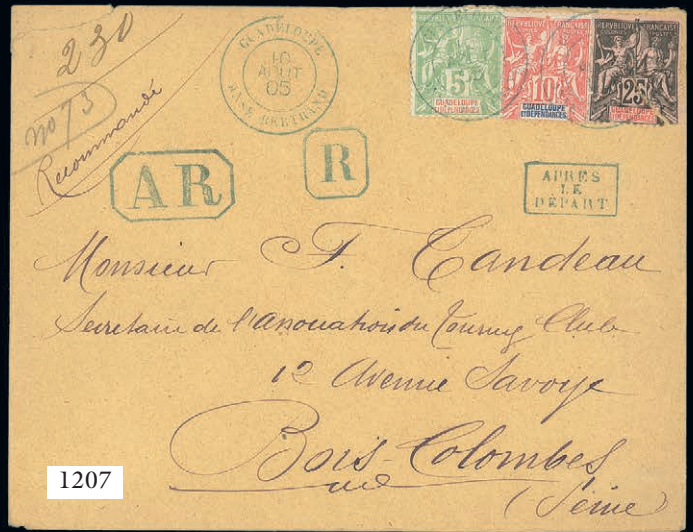 230
no 73
Recommandé
GUADELOUPE
10
AOUT
05
ANSE BERTRAND
REPUBLIQUE FRANCAISE
5c
GUADELOUPE
ET DEPENDANCES
REPUBLIQUE FRANCAISE
COLONIES POSTES
10c
GUADELOUPE
ET DEPENDANCES
REPUBLIQUE FRANCAISE
COLONIES POSTES
25c
GUADELOUPE
ET DEPENDANCES
AR
R
APRES
LE
DÉPART
Monsieur F. Candeau
Secretaire de l'association du Touring Club
12 Avenue Savoye
Bois-Colombes
(Seine)
1207